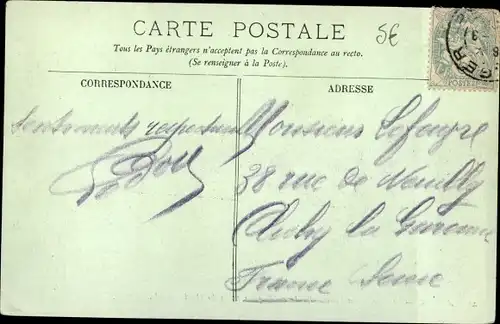 CARTE POSTALE
5€
Tous les Pays étrangers n'acceptent pas la Correspondance au recto.
(Se renseigner à la Poste).
CORRESPONDANCE
ADRESSE
Sentiments respectueux
Monsieur Lefevre
38 rue de Neuilly
Clichy la Garenne
France Seine